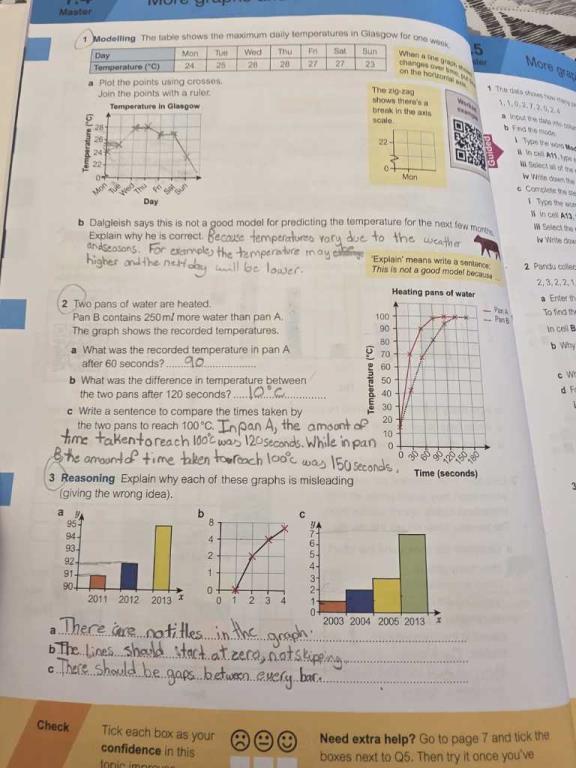 7.4
Master
More graphs
1 Modelling The table shows the maximum daily temperatures in Glasgow for one week.
Day Mon Tue Wed Thu Fri Sat Sun
Temperature (°C) 24 25 28 28 27 27 23
a Plot the points using crosses.
Join the points with a ruler.
Temperature in Glasgow
Temperature (°C)
28
26
24
22
0
Mon Tue Wed Thu Fri Sat Sun
Day
When a line graph
changes over time, put
on the horizontal axis.
The zig-zag
shows there's a
break in the axis
scale.
22
0
Mon
Worked
example
Guided
b Dalgleish says this is not a good model for predicting the temperature for the next few months.
Explain why he is correct. Because temperatures vary due to the weather
and seasons. For example, the temperature may be
higher and the next day will be lower.
'Explain' means write a sentence:
This is not a good model because ...
2 Two pans of water are heated.
Pan B contains 250 ml more water than pan A.
The graph shows the recorded temperatures.
a What was the recorded temperature in pan A
after 60 seconds? 90
b What was the difference in temperature between
the two pans after 120 seconds? 10°C
c Write a sentence to compare the times taken by
the two pans to reach 100 °C. In pan A, the amount of
time taken to reach 100°C was 120 seconds. While in pan
B the amount of time taken to reach 100°C was 150 seconds.
Heating pans of water
Temperature (°C)
100
90
80
70
60
50
40
30
20
10
0
0 30 60 90 120 150 180
Time (seconds)
Pan A
Pan B
3 Reasoning Explain why each of these graphs is misleading
(giving the wrong idea).
a
y
95
94
93
92
91
90
2011 2012 2013 x
b
8
4
2
1
0
0 1 2 3 4
c
y
7
6
5
4
3
2
1
0
2003 2004 2005 2013 x
a There are no titles in the graph.
b The lines should start at zero, not skipping
c There should be gaps between every bar.
Check
Tick each box as your
confidence in this
topic improves
Need extra help? Go to page 7 and tick the
boxes next to Q5. Then try it once you've
.5
More
1 The data shows how many
1, 1, 0, 2, 7, 2, 0, 2, 4
a Input the data into
b Find the mode.
i Type the word
ii In cell A11, type
iii Select all of the
iv Write down the
c Complete the
i Type the word
ii In cell A13,
iii Select the
iv Write down
2 Pandu collects
2, 3, 2, 2, 1,
a Enter
To find
In cell B
b Why
c
d
3